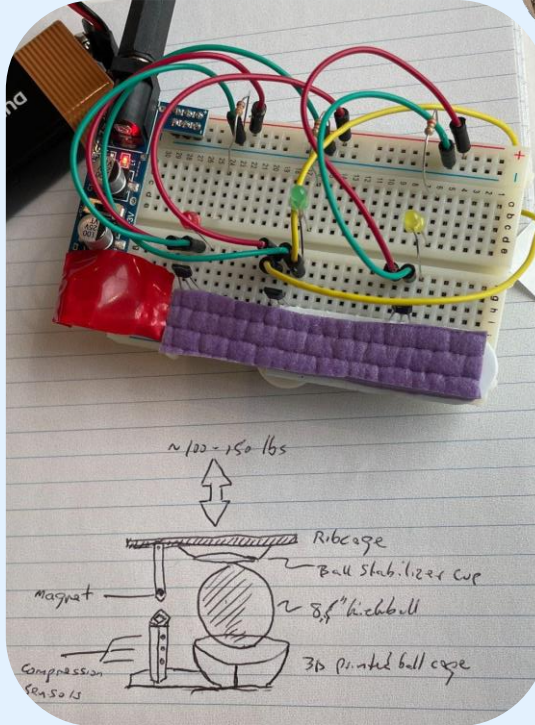 DU
+
-
3V
a b c d e
~100-150 lbs
Ribcage
Ball Stabilizer Cup
Magnet
~ 8,5" kickball
3D printed ball cage
Compression
Sensors